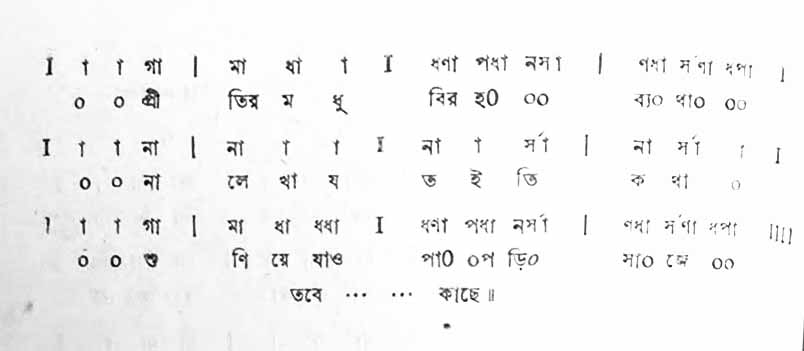 I া া গা | মা ধা া I ধণা পধা নর্সা | ণধা র্সণা ধপা I
০ ০ প্রী তির ম ধু বির হ০ ০০ ব্য০ থা০ ০০
I া া না | না া া I না া র্সা | না র্সা া I
০ ০ না লে খা য ত ই তি ক থা ০
I া া গা | মা ধা ধধা I ধণা পধা নর্সা | ণধা র্সণা ধপা IIII
০ ০ শু ণি য়ে যাও পা০ ০প ড়ি০ সা০ ঙ্গে ০০
তবে ... ... কাছে॥